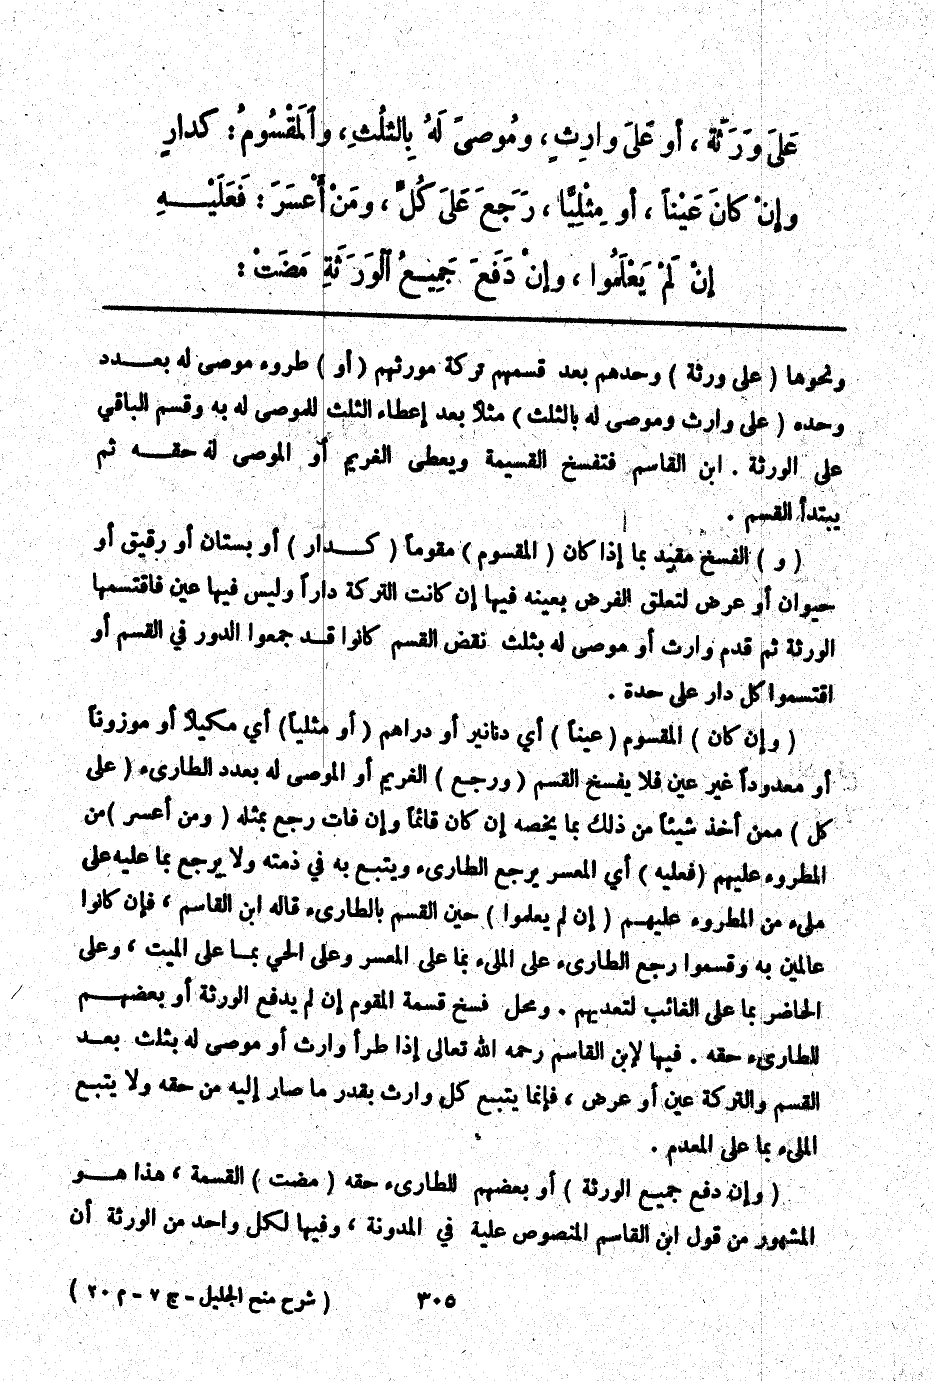 عَلَى وَرَثَةٍ ، أو عَلَى وارِثٍ ، ومُوصىً لَهُ بِالثلُثِ ، وٱلْمَقْسُومُ : كَدارٍ
وإِنْ كانَ عَيْناً ، أو مِثْلِيًّا ، رَجَعَ عَلَى كُلٍّ ، ومَنْ أَعْسَرَ : فَعَلَيْـــهِ
إنْ لَمْ يَعْلَمُوا ، وإنْ دَفَعَ جَمِيـعُ ٱلْوَرَثَةِ مَضَتْ :
ونحوها ( على ورثة ) وحدهم بعد قسمهم تركة مورثهم ( أو ) طروء موصى له بعـــدد
وحده ( على وارث وموصى له بالثلث ) مثلاً بعد إعطاء الثلث للموصى له به وقسم الباقي
على الورثة . ابن القاسم فتفسخ القسيمة ويعطى الغريم أو الموصى له حقـــه ثم
يبتدأ القسم .
( و ) الفسخ مقيد بما إذا كان ( المقسوم ) مقوماً ( كـــدار ) أو بستان أو رقيق أو
حيوان أو عرض لتعلق الغرض بعينه فيها إن كانت التركة داراً وليس فيها عين فاقتسمها
الورثة ثم قدم وارث أو موصى له بثلث نقض القسم كانوا قـــد جمعوا الدور في القسم أو
اقتسموا كل دار على حدة .
( وإن كان ) المقسوم ( عيناً ) أي دنانير أو دراهم ( أو مثلياً ) أي مكيلاً أو موزوناً
أو معدوداً غير عين فلا يفسخ القسم ( ورجـع ) الغريم أو الموصى له بعدد الطارىء ( على
كل ) ممن أخذ شيئاً من ذلك بما يخصه إن كان قائماً وإن فات رجع بمثله ( ومن أعسر ) من
المطروء عليهم ( فعليه ) أي المعسر يرجع الطارىء ويتبـع به في ذمته ولا يرجع بما عليه على
ملىء من المطروء عليهـم ( إن لم يعلموا ) حين القسم بالطارىء قاله ابن القاسم ، فإن كانوا
عالمين به وقسموا رجع الطارىء على الملىء بما على المعسر وعلى الحي بمـا على الميت ، وعلى
الحاضر بما على الغائب لتعديهم . ومحل فسخ قسمة المقوم إن لم يدفع الورثة أو بعضهـــم
للطارىء حقه . فيها لإبن القاسم رحمه الله تعالى إذا طرأ وارث أو موصى له بثلث بعـد
القسم والتركة عين أو عرض ، فإنما يتبـع كل وارث بقدر ما صار إليه من حقه ولا يتبـع
الملىء بما على المعدم .
( وإن دفع جميـع الورثة ) أو بعضهم للطارىء حقه ( مضت ) القسمة ، هذا هـــو
المشهور من قول ابن القاسم المنصوص علية في المدونة ، وفيها لكل واحد من الورثة أن
٣٠٥ ( شرح منح الجليل - ج ٧ - م ٢٠ )